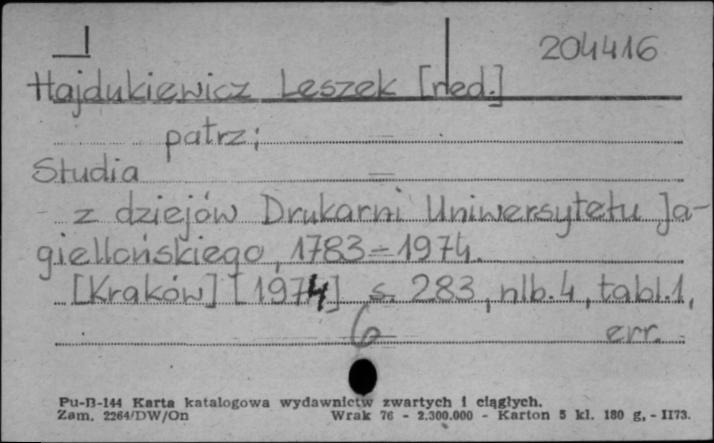 204416
Hajdukiewicz Leszek [red.]
patrz:
Studia
z dziejów Drukarni Uniwersytetu Ja-
giellońskiego, 1783-1974.
[Kraków] [1974] s. 283, nlb. 4, tabl. 1,
err.
Pu-B-144 Karta katalogowa wydawnictw zwartych i ciągłych.
Zam. 2264/DW/On Wrak 76 - 2.300.000 - Karton 5 kl. 180 g. - II73.